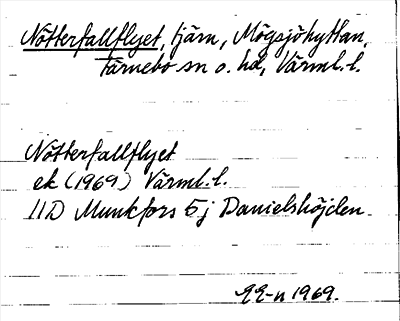 Nötterfallflyet, tjärn, Mögsjöhyttan,
Färnebo sn o. hd, Värml. l.
Nötterfallflyet
ek (1969) Värml. l.
11D Munkfors 5j Danielshöjden.
1969.